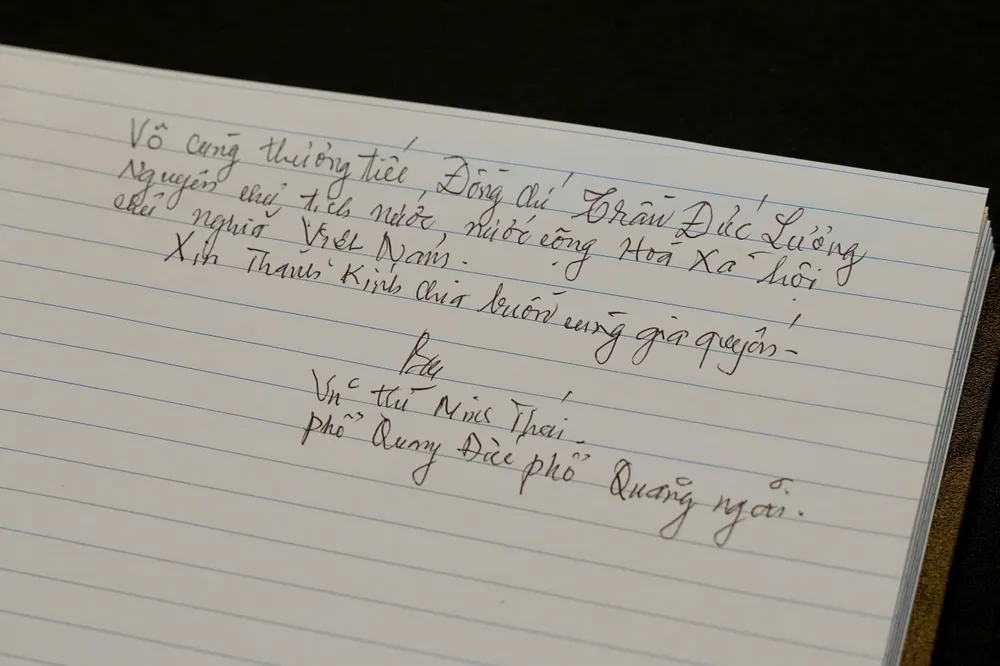 Vô cùng thương tiếc, Đồng chí Trần Đức Lương
Nguyên chủ tịch nước, nước cộng Hoà Xã hội
chủ nghĩa Việt Nam.
Xin Thành Kính chia buồn cùng gia quyến -
thị Minh Thái -
phổ Quang Đức phổ Quảng ngãi.